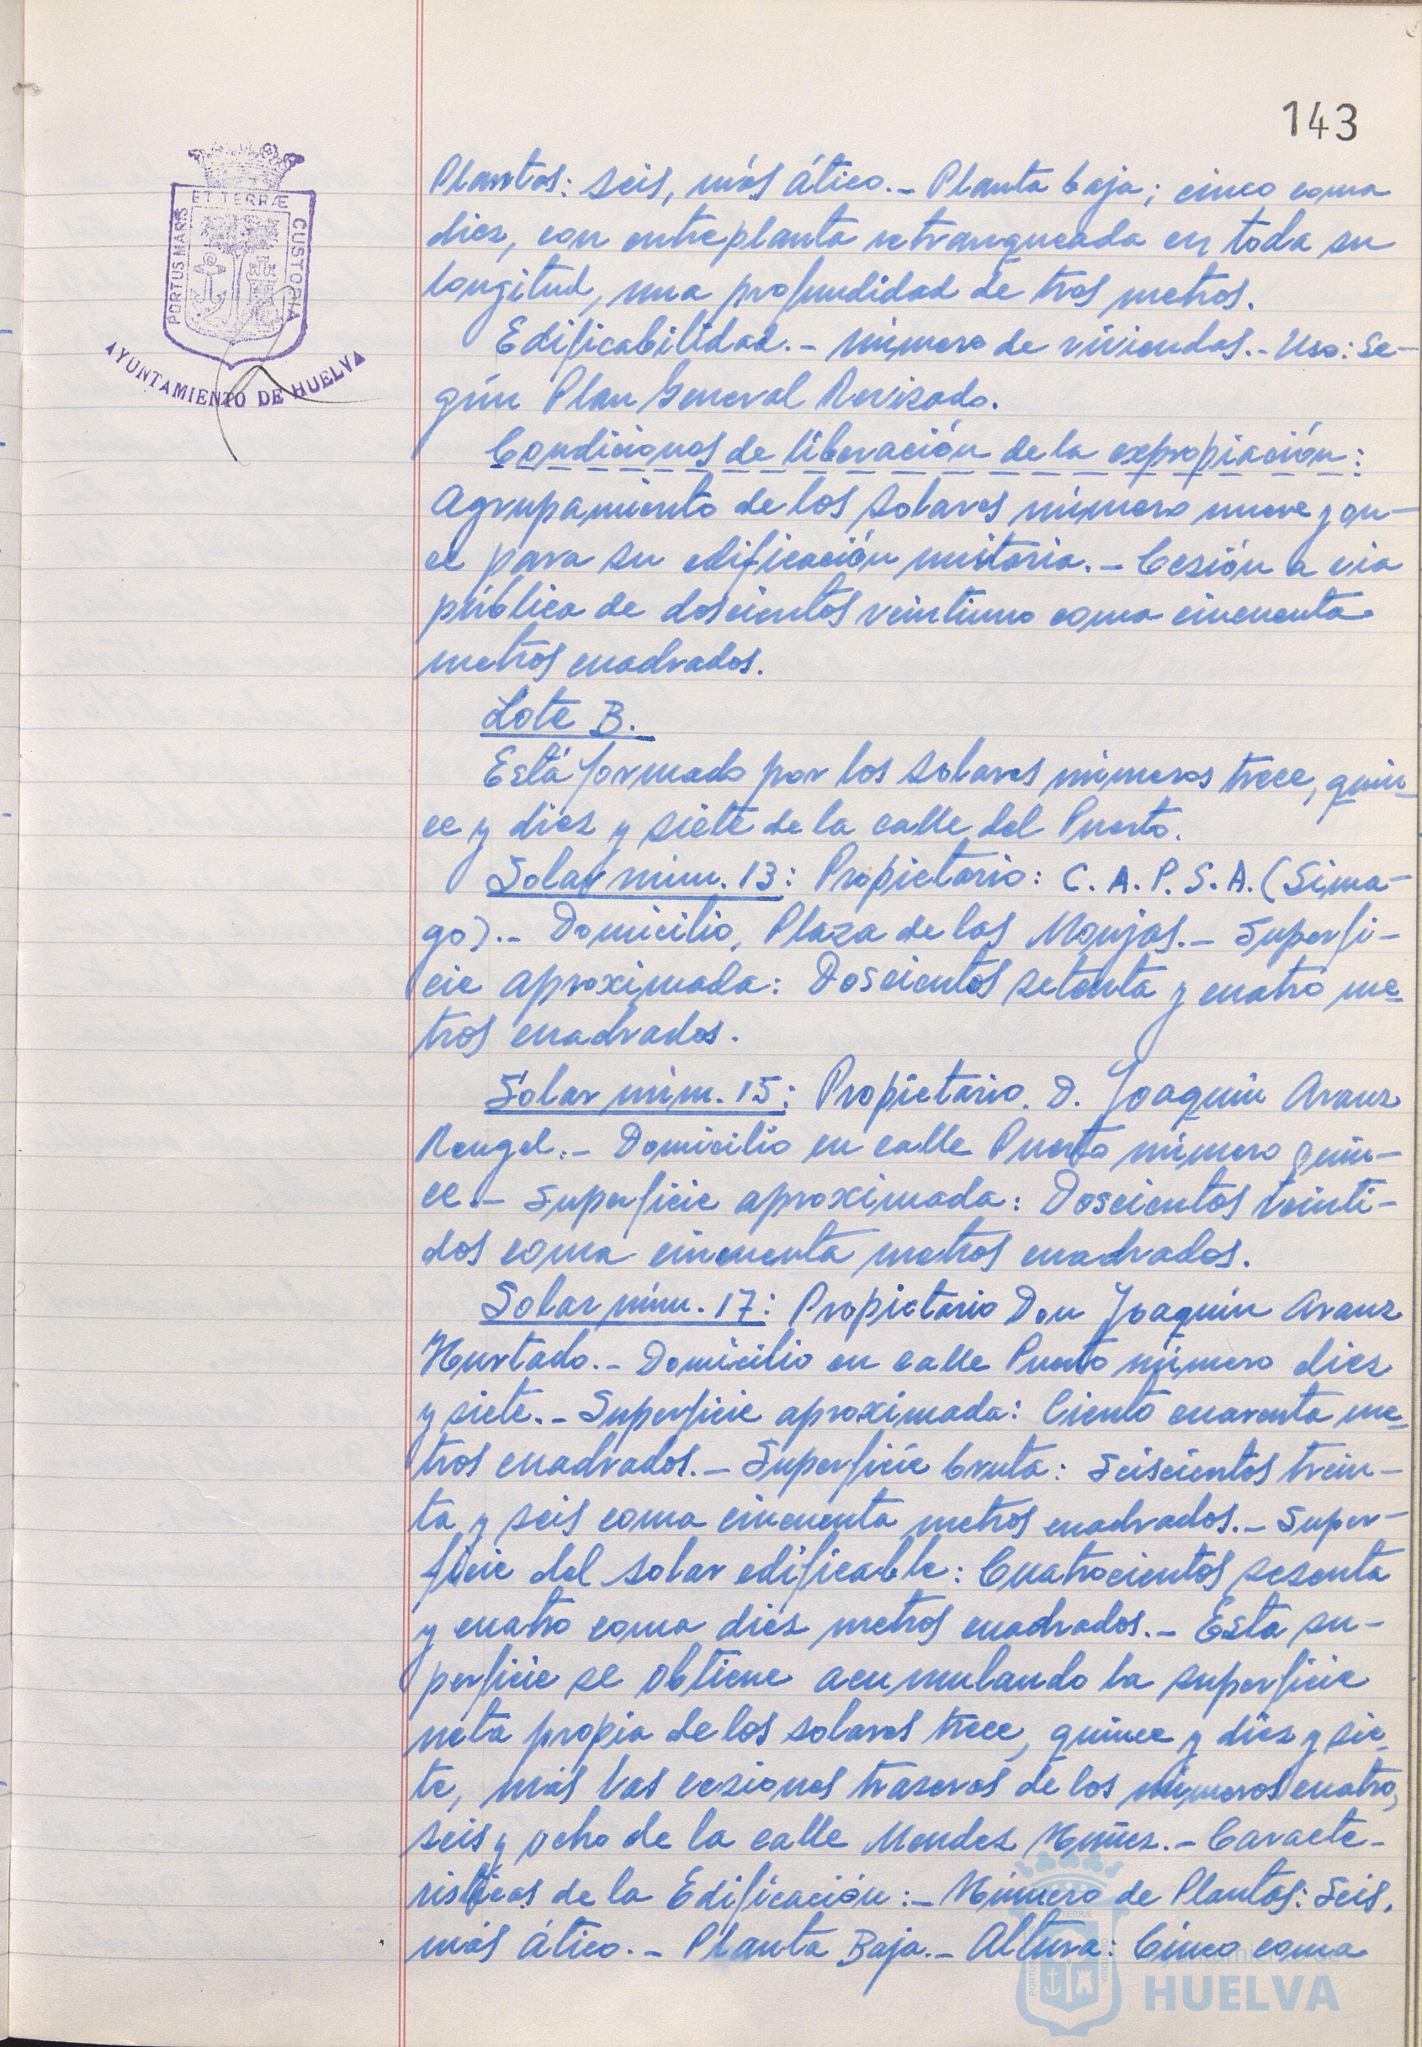 143
PORTUS MARIS ET TERRÆ CUSTODIA
AYUNTAMIENTO DE HUELVA
Plantas: seis, más ático.- Planta baja; cinco coma
diez, con entreplanta retranqueada en toda su
longitud, una profundidad de tres metros.
Edificabilidad.- Número de viviendas.- Uso: Se-
gún Plan General Revisado.
Condiciones de liberación de la expropiación:
Agrupamiento de los solares número nueve y on-
ce para su edificación unitaria.- Cesión a via
pública de doscientos veintiuno coma cincuenta
metros cuadrados.
Lote B.
Está formado por los solares números trece, quin-
ce y diez y siete de la calle del Puerto.
Solar núm. 13: Propietario: C.A.P.S.A. (Sima-
go).- Domicilio, Plaza de las Monjas.- Superfi-
cie aproximada: Doscientos setenta y cuatro me-
tros cuadrados.
Solar núm. 15: Propietario. D. Joaquín Aranz
Rengel.- Domicilio en calle Puerto número quin-
ce.- Superficie aproximada: Doscientos veinti-
dos coma cincuenta metros cuadrados.
Solar núm. 17: Propietario Don Joaquín Aranz
Hurtado.- Domicilio en calle Puerto número diez
y siete.- Superficie aproximada: Ciento cuarenta me-
tros cuadrados.- Superficie bruta: Seiscientos trein-
ta y seis coma cincuenta metros cuadrados.- Super-
ficie del solar edificable: Cuatrocientos sesenta
y cuatro coma diez metros cuadrados.- Esta su-
perficie se obtiene acumulando la superficie
neta propia de los solares trece, quince y diez y sie-
te, más las cesiones traseras de los números cuatro,
seis y ocho de la calle Mendez Núñez.- Caracte-
risticas de la Edificación:- Número de Plantas: Seis,
más ático.- Planta Baja.- Altura: Cinco coma
Ayuntamiento de
HUELVA